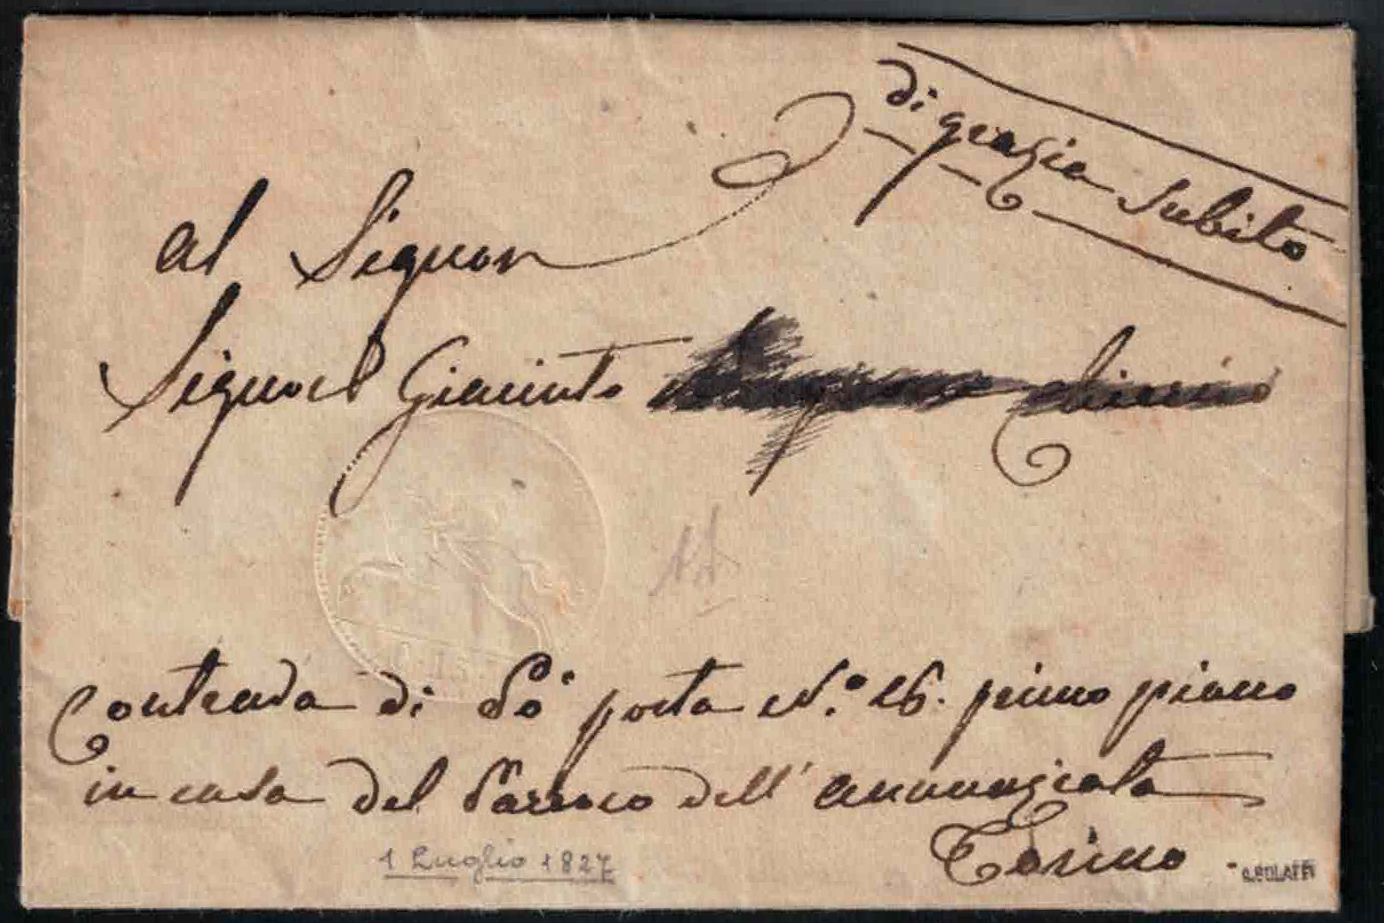 di grazia Subito
Al Signor
Signor Giacinto
Contrada di Pò porta N.º 26. primo piano
in casa del Parroco dell' annunziata
Torino
1 Luglio 1827
G.BOLAFFI